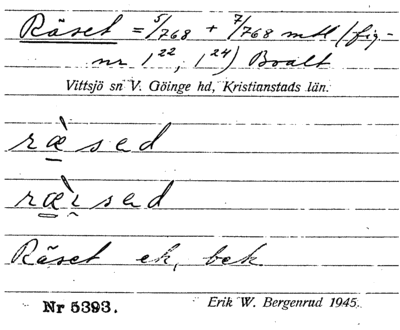 Räset = 5/768 + 7/768 mtl (fig-
nr 1 22, 1 24) Boalt
Vittsjö sn V. Göinge hd, Kristianstads län.
ræ̀sed
ræ̀ɪsed
Räset ek, bek
Nr 5393. Erik W. Bergenrud 1945.